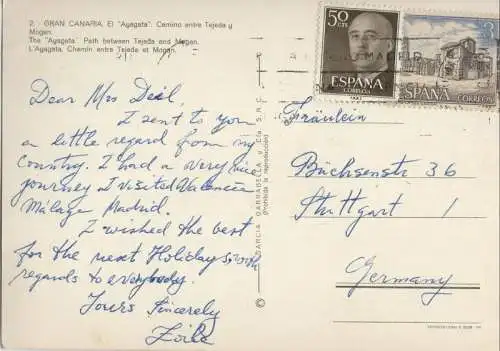 2. - GRAN CANARIA. El "Ayagata". Camino entre Tejeda y
Mogan.
The "Ayagata". Path between Tejeda and Mogan.
L'Ayagata. Chemin entre Tejeda et Mogan.
50 CTS
ESPAÑA
CORREOS
ESPAÑA
CORREOS
Dear Mrs
I sent to you
a little regard from my
country. I had a very nice
journey I visited Valencia
Málaga Madrid.
I wished the best
for the next Holidays, good
regards to everybody.
Yours Sincerely
GARCIA GARRABELLA y Cía S.R.C.
(Prohibida la reproducción)
Fräulein
Büchsenstr 36
Stuttgart 1
Germany